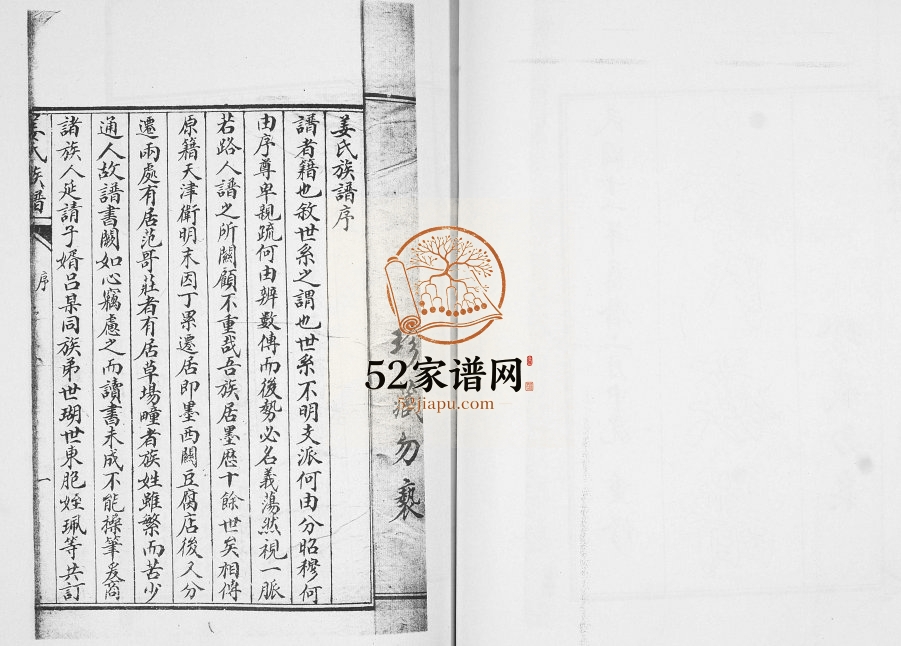 珍藏勿褻
姜氏族譜序
譜者籍也敘世系之謂也世系不明支派何由分昭穆何
由序尊卑親疏何由辨數傳而後勢必名義蕩然視一脈
若路人譜之所關顧不重哉吾族居墨歷十餘世矣相傳
原籍天津衛明末因丁累遷居即墨西關豆腐店後又分
遷兩處有居范哥莊者有居草場疃者族姓雖繁而苦少
通人故譜書闕如心竊慮之而讀書未成不能操筆爰商
諸族人延請子婿呂杲同族弟世瑚世東胞姪珮等共訂
姜氏族譜
序
一
52家谱网
52jiapu.com